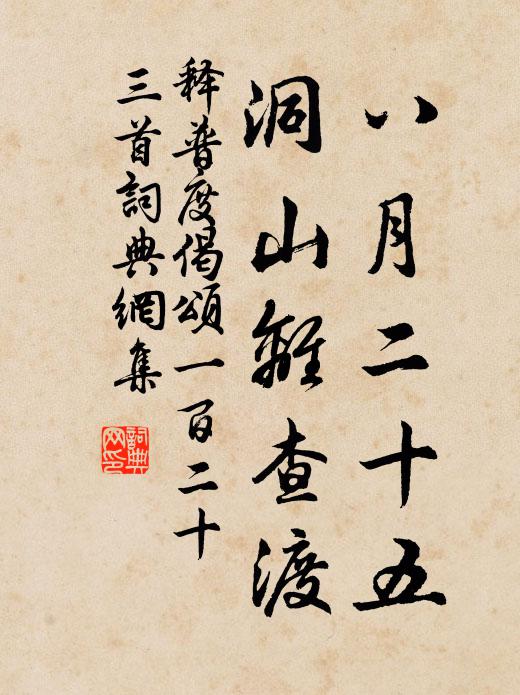 八月二十五
洞山離查渡
释普度偈頌一百二十
三首詞典網集
詞典网印